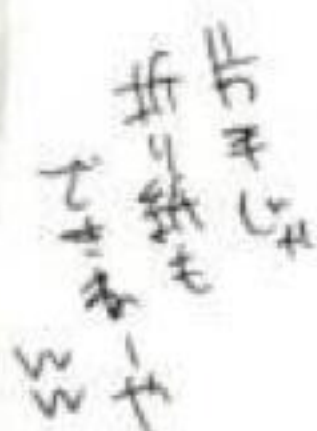 片手じゃ
折り紙も
できねーや
ww